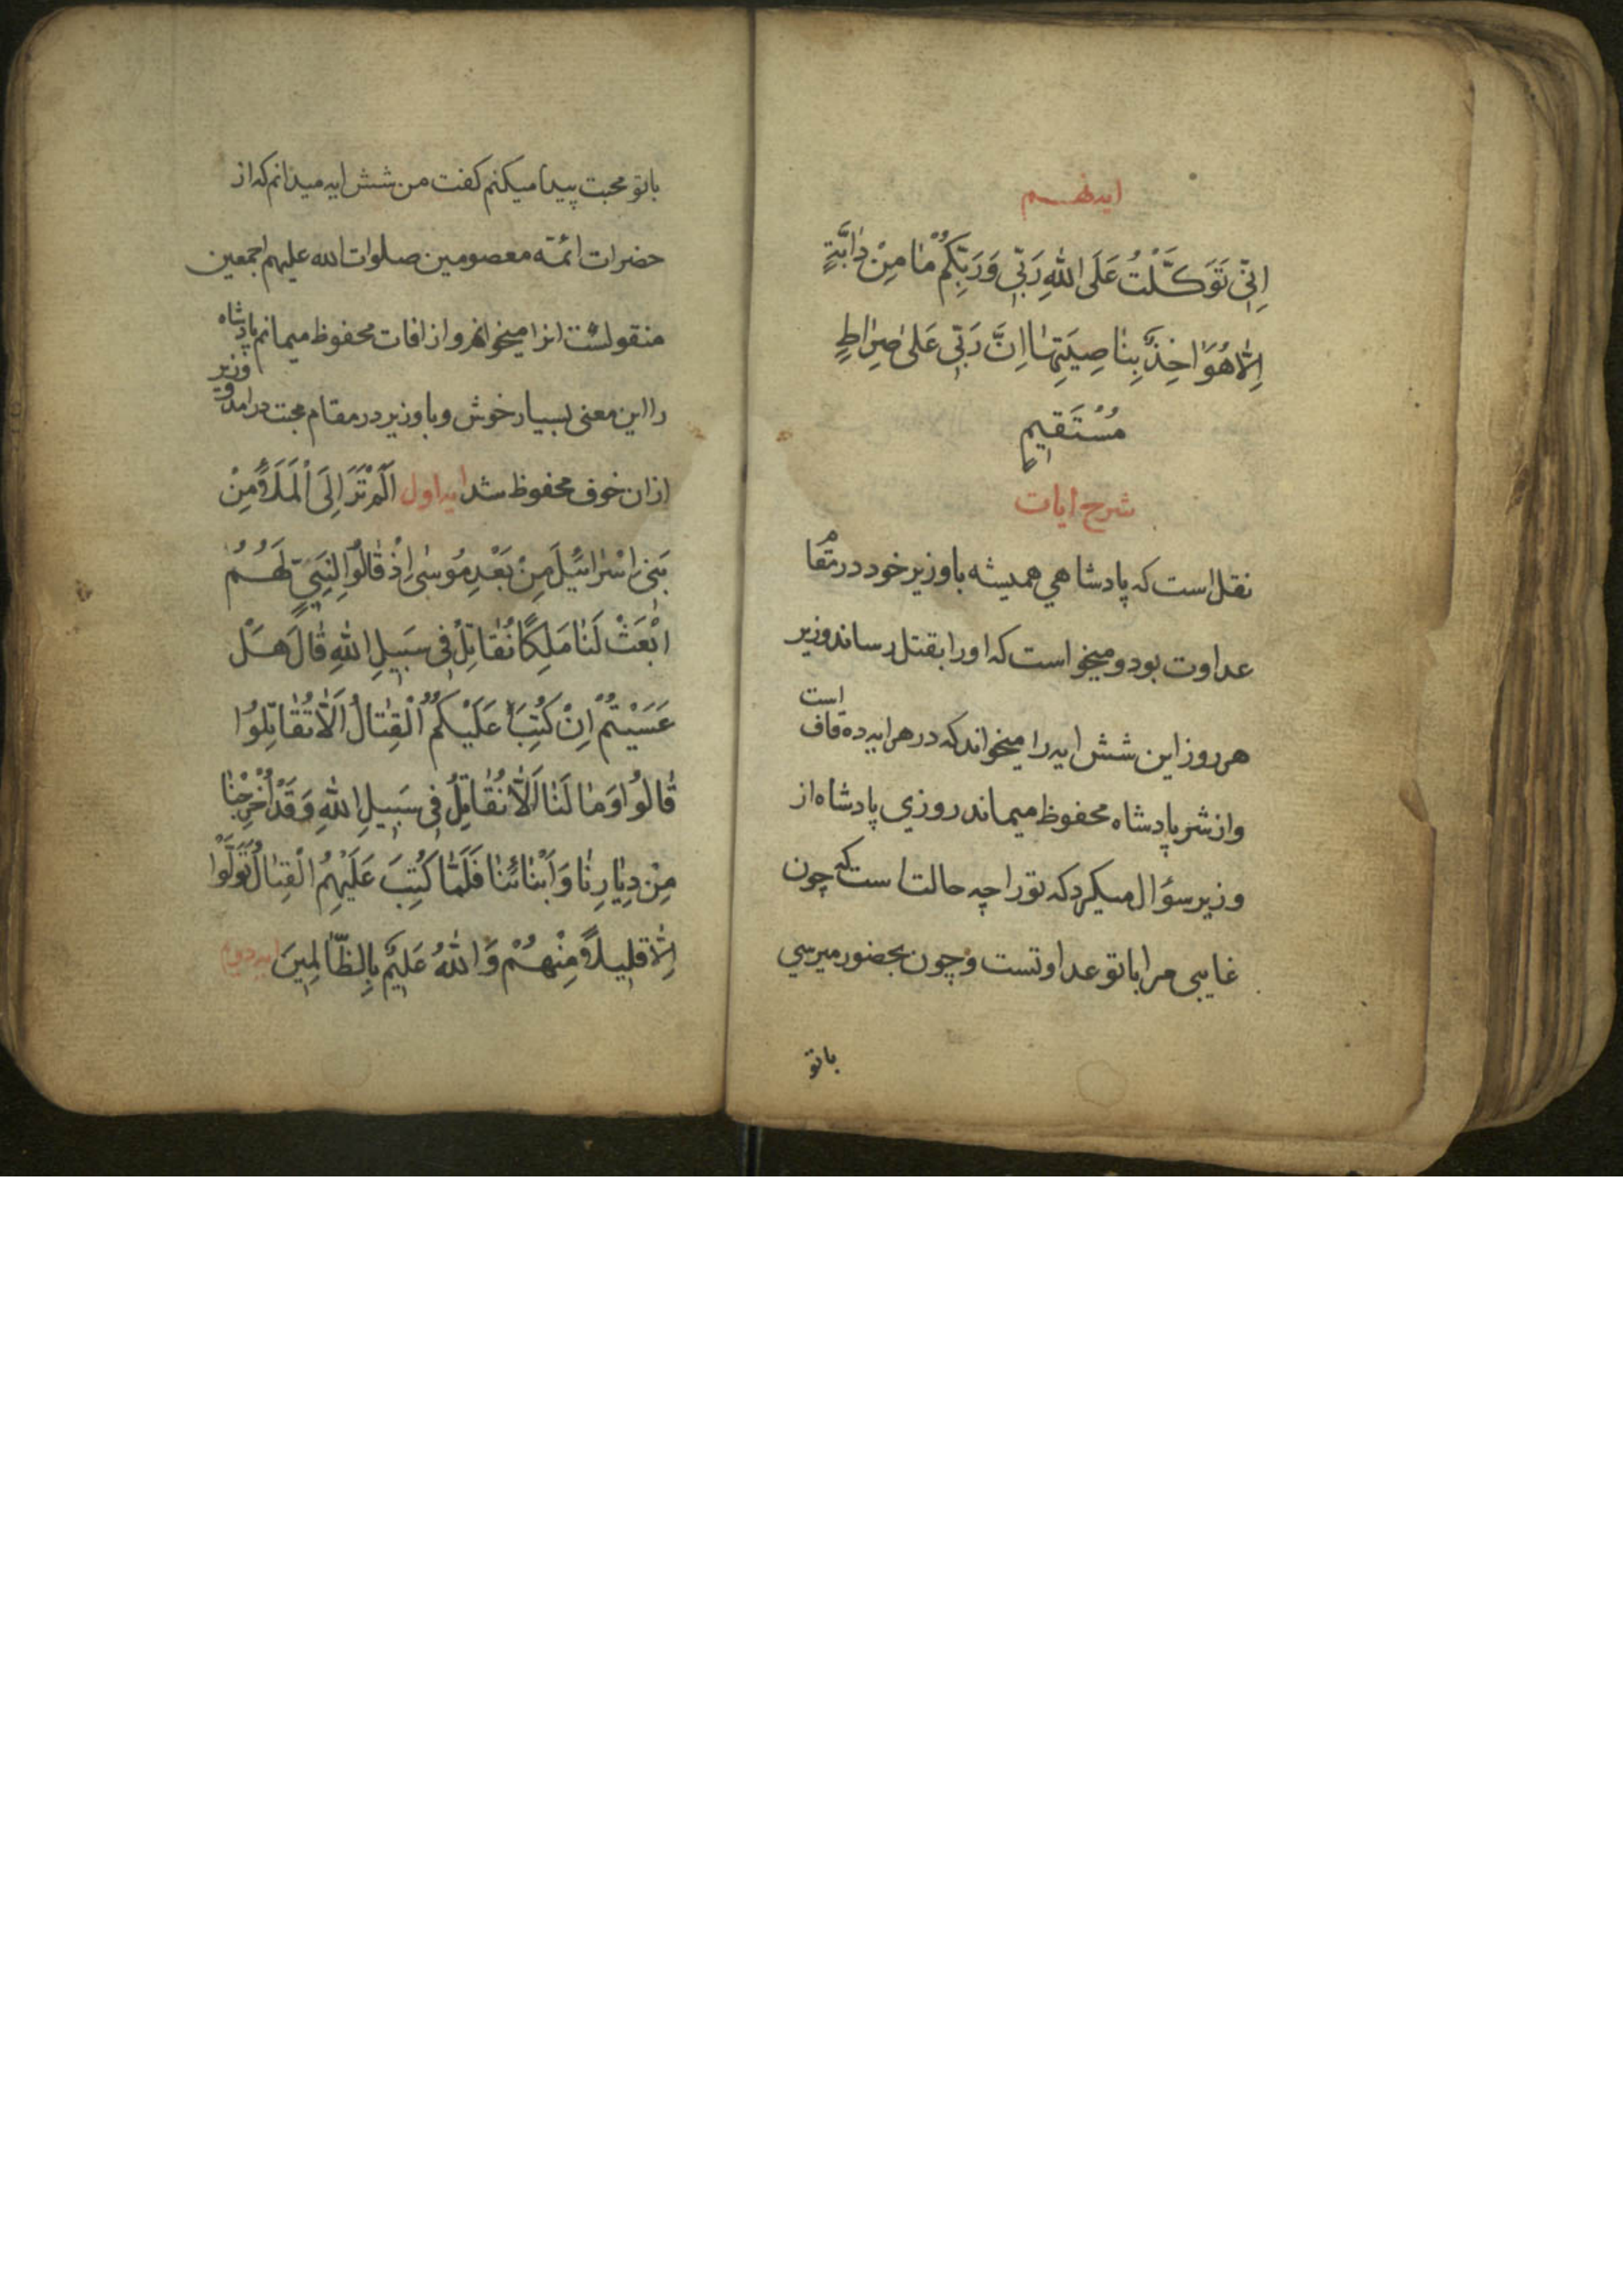 ایه نهم
اِنّی تَوَکَّلْتُ عَلَی اللهِ رَبّی وَرَبِّکُمْ مٰا مِنْ دٰابَّةٍ
اِلّٰا هُوَ اٰخِذٌ بِنٰاصِیَتِهٰا اِنَّ رَبّی عَلیٰ صِرٰاطٍ
مُسْتَقیمٍ
شرح ایات
نقل است که پادشاهی همیشه با وزیر خود در مقام
عداوت بود و میخواست که او را بقتل رساند وزیر
هر روز این شش ایه را میخواند که در هر ایه ده قاف است
و از شر پادشاه محفوظ میماند روزی پادشاه از
وزیر سؤال میکرد که تو را چه حالت است که چون
غایبی مرا با تو عداوتست و چون بحضور میرسی
باتو
باتو محبت پیدا میکنم کفت من شش ایه میدانم که از
حضرات ائمّه معصومین صلوات الله علیهم اجمعین
منقولست انرا میخوانم و از افات محفوظ میمانم پادشاه
را این معنی بسیار خوش و با وزیر در مقام محبت درامد و وزیر
از ان خوف محفوظ شد ایه اول اَلَمْ تَرَ اِلَی الْمَلَأِ مِنْ
بَنی اِسْرٰائیلَ مِنْ بَعْدِ مُوسیٰ اِذْ قٰالُوا لِنَبِیٍّ لَهُمُ
ابْعَثْ لَنٰا مَلِکًا نُقٰاتِلْ فی سَبیلِ اللهِ قٰالَ هَلْ
عَسَیْتُمْ اِنْ کُتِبَ عَلَیْکُمُ الْقِتٰالُ اَلّٰا تُقٰاتِلُوا
قٰالُوا وَمٰا لَنٰا اَلّٰا نُقٰاتِلَ فی سَبیلِ اللهِ وَقَدْ اُخْرِجْنٰا
مِنْ دِیٰارِنٰا وَاَبْنٰائِنٰا فَلَمّٰا کُتِبَ عَلَیْهِمُ الْقِتٰالُ تَوَلَّوْا
اِلّٰا قَلیلًا مِنْهُمْ وَاللهُ عَلیمٌ بِالظّٰالِمینَ ایه دویم